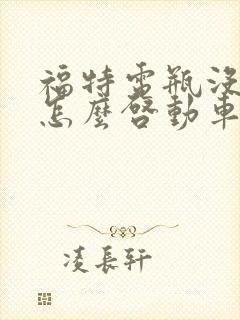 福特電瓶沒
怎麼啓動車
凌長軒